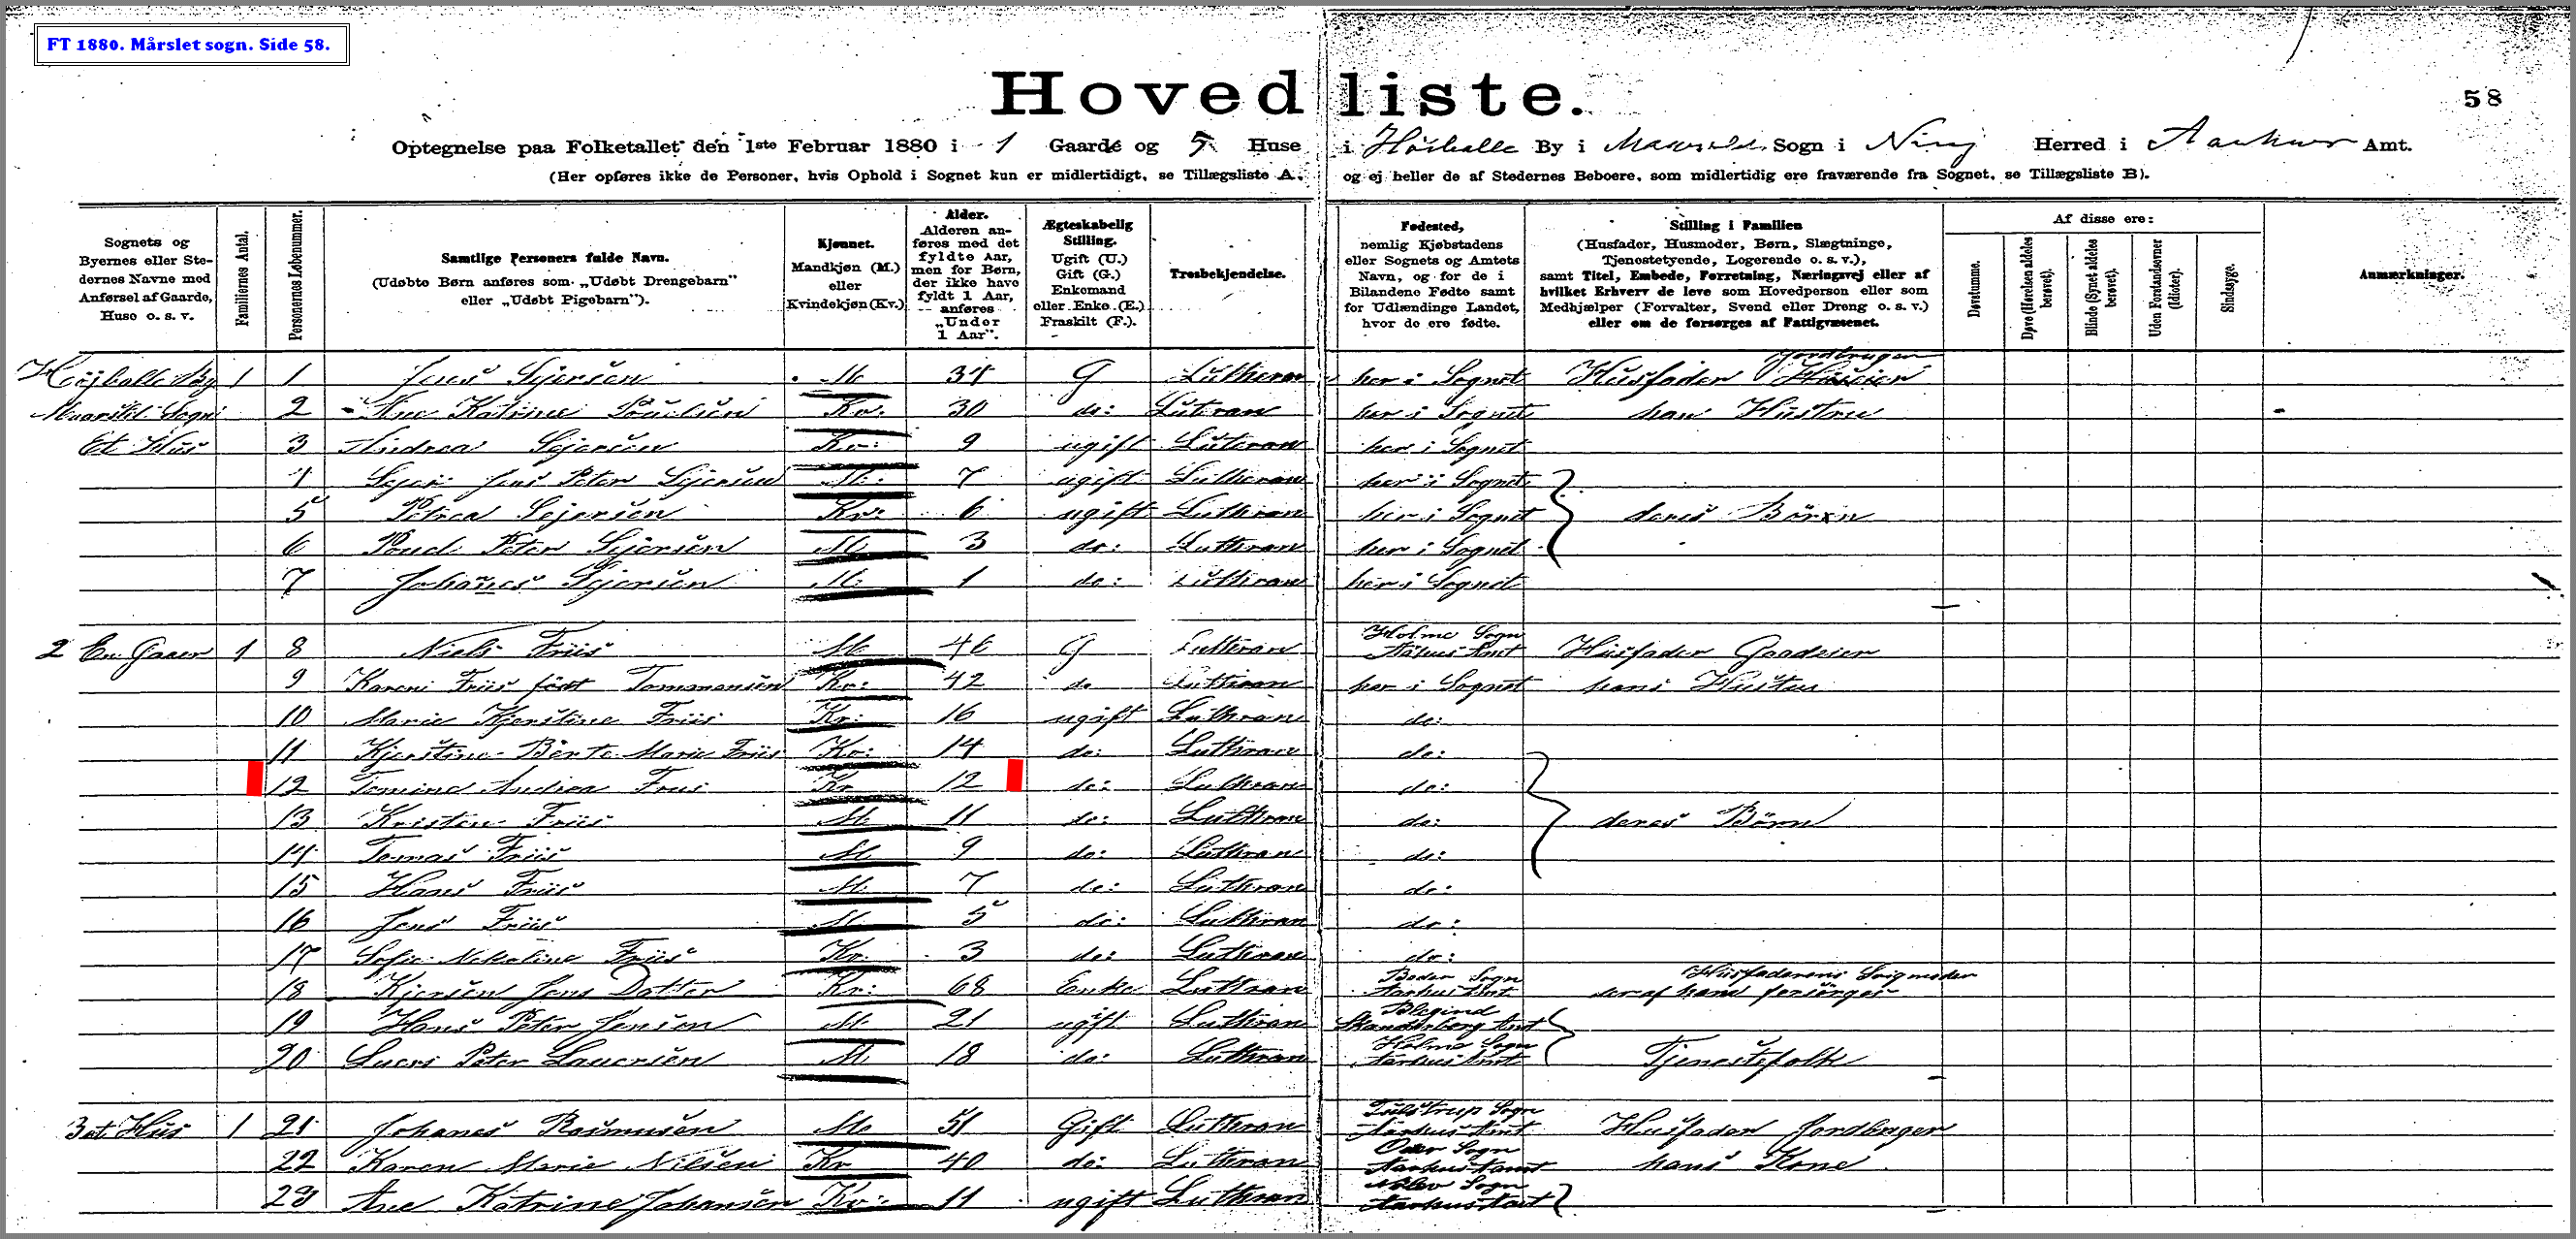 FT 1880. Mårslet sogn. Side 58.
Hovedliste.
58
Optegnelse paa Folketallet den 1ste Februar 1880 i 1 Gaarde og 5 Huse i Höiballe By i Sogn i Ning Herred i Aarhuus Amt.
(Her opføres ikke de Personer, hvis Ophold i Sognet kun er midlertidigt, se Tillægsliste A., og ej heller de af Stedernes Beboere, som midlertidig ere fraværende fra Sognet, se Tillægsliste B).
Sognets og Byernes eller Stedernes Navne med Anførsel af Gaarde, Huse o. s. v.
Familiernes Antal.
Personernes Løbenummer.
Samtlige Personers fulde Navn.
(Udøbte Børn anføres som „Udøbt Drengebarn" eller „Udøbt Pigebarn").
Kjønnet.
Mandkjøn (M.) eller Kvindekjøn (Kv.)
Alder.
Alderen anføres med det fyldte Aar, men for Børn, der ikke have fyldt 1 Aar, anføres „Under 1 Aar".
Ægteskabelig Stilling.
Ugift (U.) Gift (G.) Enkemand eller Enke (E.) Fraskilt (F.).
Trosbekjendelse.
Fødested,
nemlig Kjøbstadens eller Sognets og Amtets Navn, og for de i Bilandene Fødte samt for Udlændinge Landet, hvor de ere fødte.
Stilling i Familien
(Husfader, Husmoder, Børn, Slægtninge, Tjenestetyende, Logerende o. s. v.),
samt Titel, Embede, Forretning, Næringsvej eller af hvilket Erhverv de leve som Hovedperson eller som Medhjælper (Forvalter, Svend eller Dreng o. s. v.) eller om de forsørges af Fattigvæsenet.
Af disse ere:
Døvstumme.
Døve (Hørelsen aldeles berøvet).
Blinde (Synet aldeles berøvet).
Uden Forstandsevner (Idioter).
Sindssyge.
Anmærkninger.
Höjballe By 1 1 Jens Sejersen M 34 G Lutheran her i Sognet Husfader Jordbruger
Sogn 2 Ane Katrine Poulsen Kv: 30 do: Lutran her i Sognet hans Hustru
Et Hus 3 Andrea Sejersen Kv: 9 ugift Luteran her i Sognet
4 Sejer Jens Peter Sejersen M: 7 ugift Lutheran her i Sognet
5 Petrea Sejersen Kv: 6 ugift Luthran her i Sognet deres Börn
6 Poul Peter Sejersen M 3 do: Lutheran her i Sognet
7 Johanes Sejersen M: 1 do: Lutheran her i Sognet
2 En Gaard 1 8 Niels Friis M 46 G Lutheran Holme Sogn Aarhus Amt Husfader Gaardeier
9 Karen Friis födt Tommasen Kv: 42 do Luthran her i Sognet hans Hustru
10 Marie Kjerstine Friis Kv: 16 ugift Luthran do:
11 Kjerstine Birte Marie Friis Kv: 14 do: Luthran do:
12 Tomine Andrea Friis Kv 12 do: Luthran do:
13 Kristen Friis M 11 do: Luthran do: deres Börn
14 Tomas Friis M 9 do: Luthran do:
15 Hans Friis M. 7 do: Luthran do:
16 Jens Friis M. 5 do: Luthran do:
17 Sofie Nikoline Friis Kv. 3 do: Luthran do:
18 Kjersten Jens Datter Kv: 68 Enke Luthran Beder Sogn Aarhus Amt Husfaderens Svigmoder der af ham forsörges
19 Hans Peter Jensen M 21 ugift Luthran Blegind Skanderborg Amt
20 Peter Laursen M 18 do: Luthran Holme Sogn Aarhus Amt Tjenestefolk
3 et Hus 1 21 Johanes Rasmusen M 51 Gift Lutheran Tulstrup Sogn Aarhus Amt Husfader Jordbruger
22 Karen Marie Nilsen Kv 40 do: Lutheran Sogn Aarhus Amt hans Kone
23 Ane Katrine Johansen Kv: 11 ugift Luthran Sogn Aarhus Amt